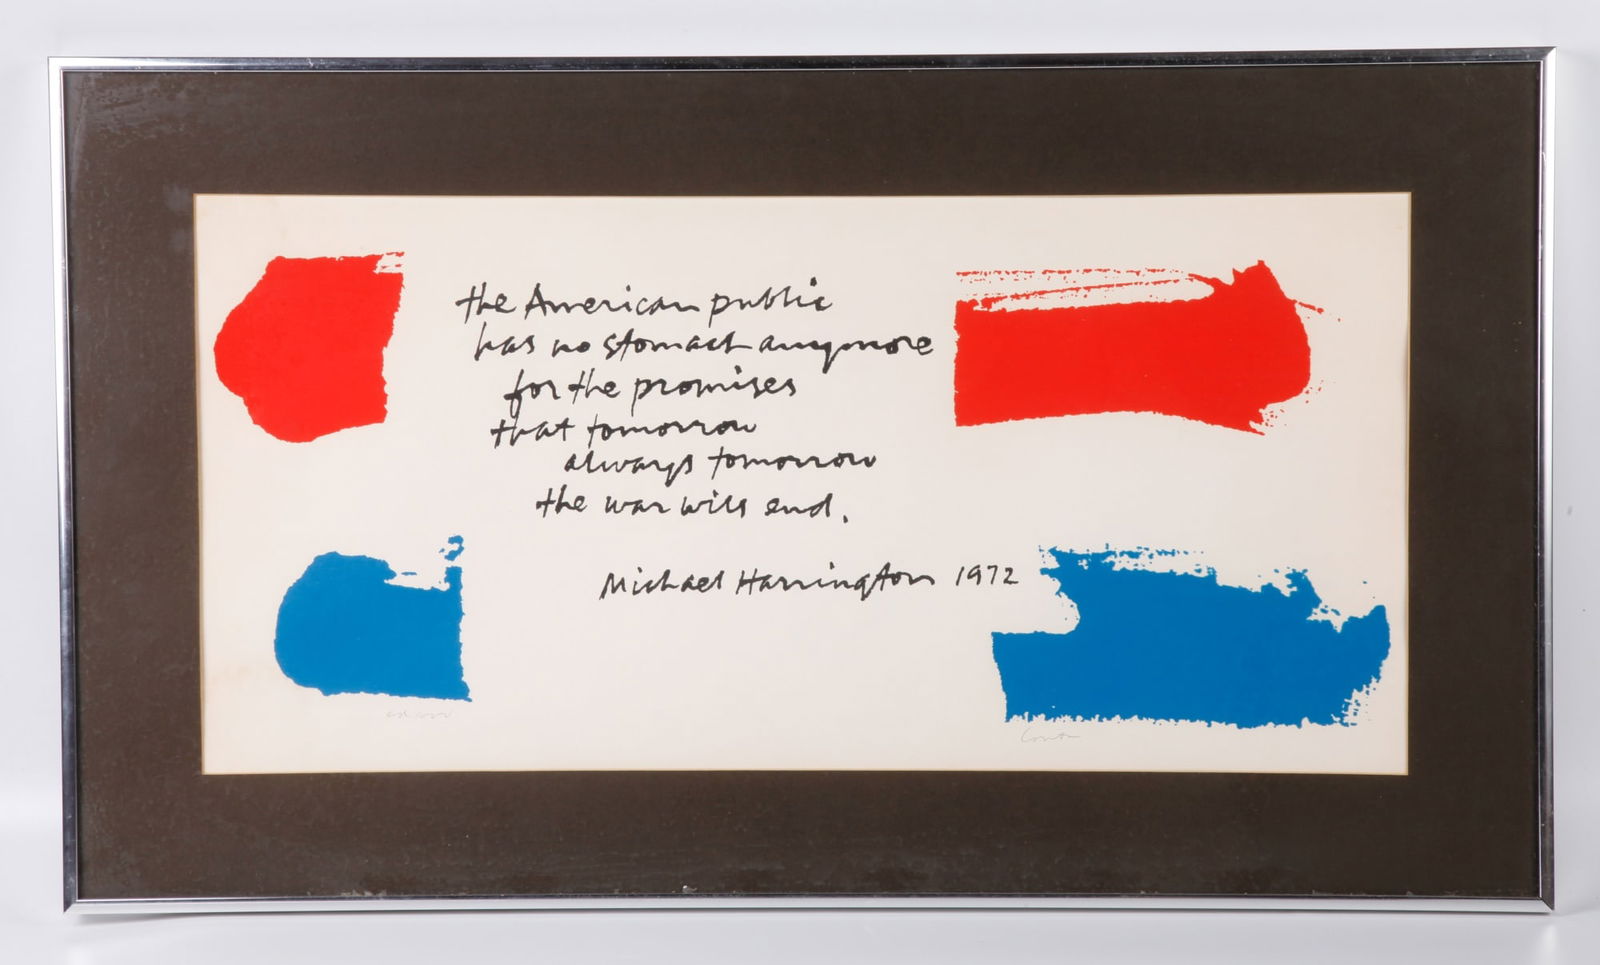 the American public
has no stomach anymore
for the promises
that tomorrow
always tomorrow
the war will end.
Michael Harrington 1972
ed 1000
Corita